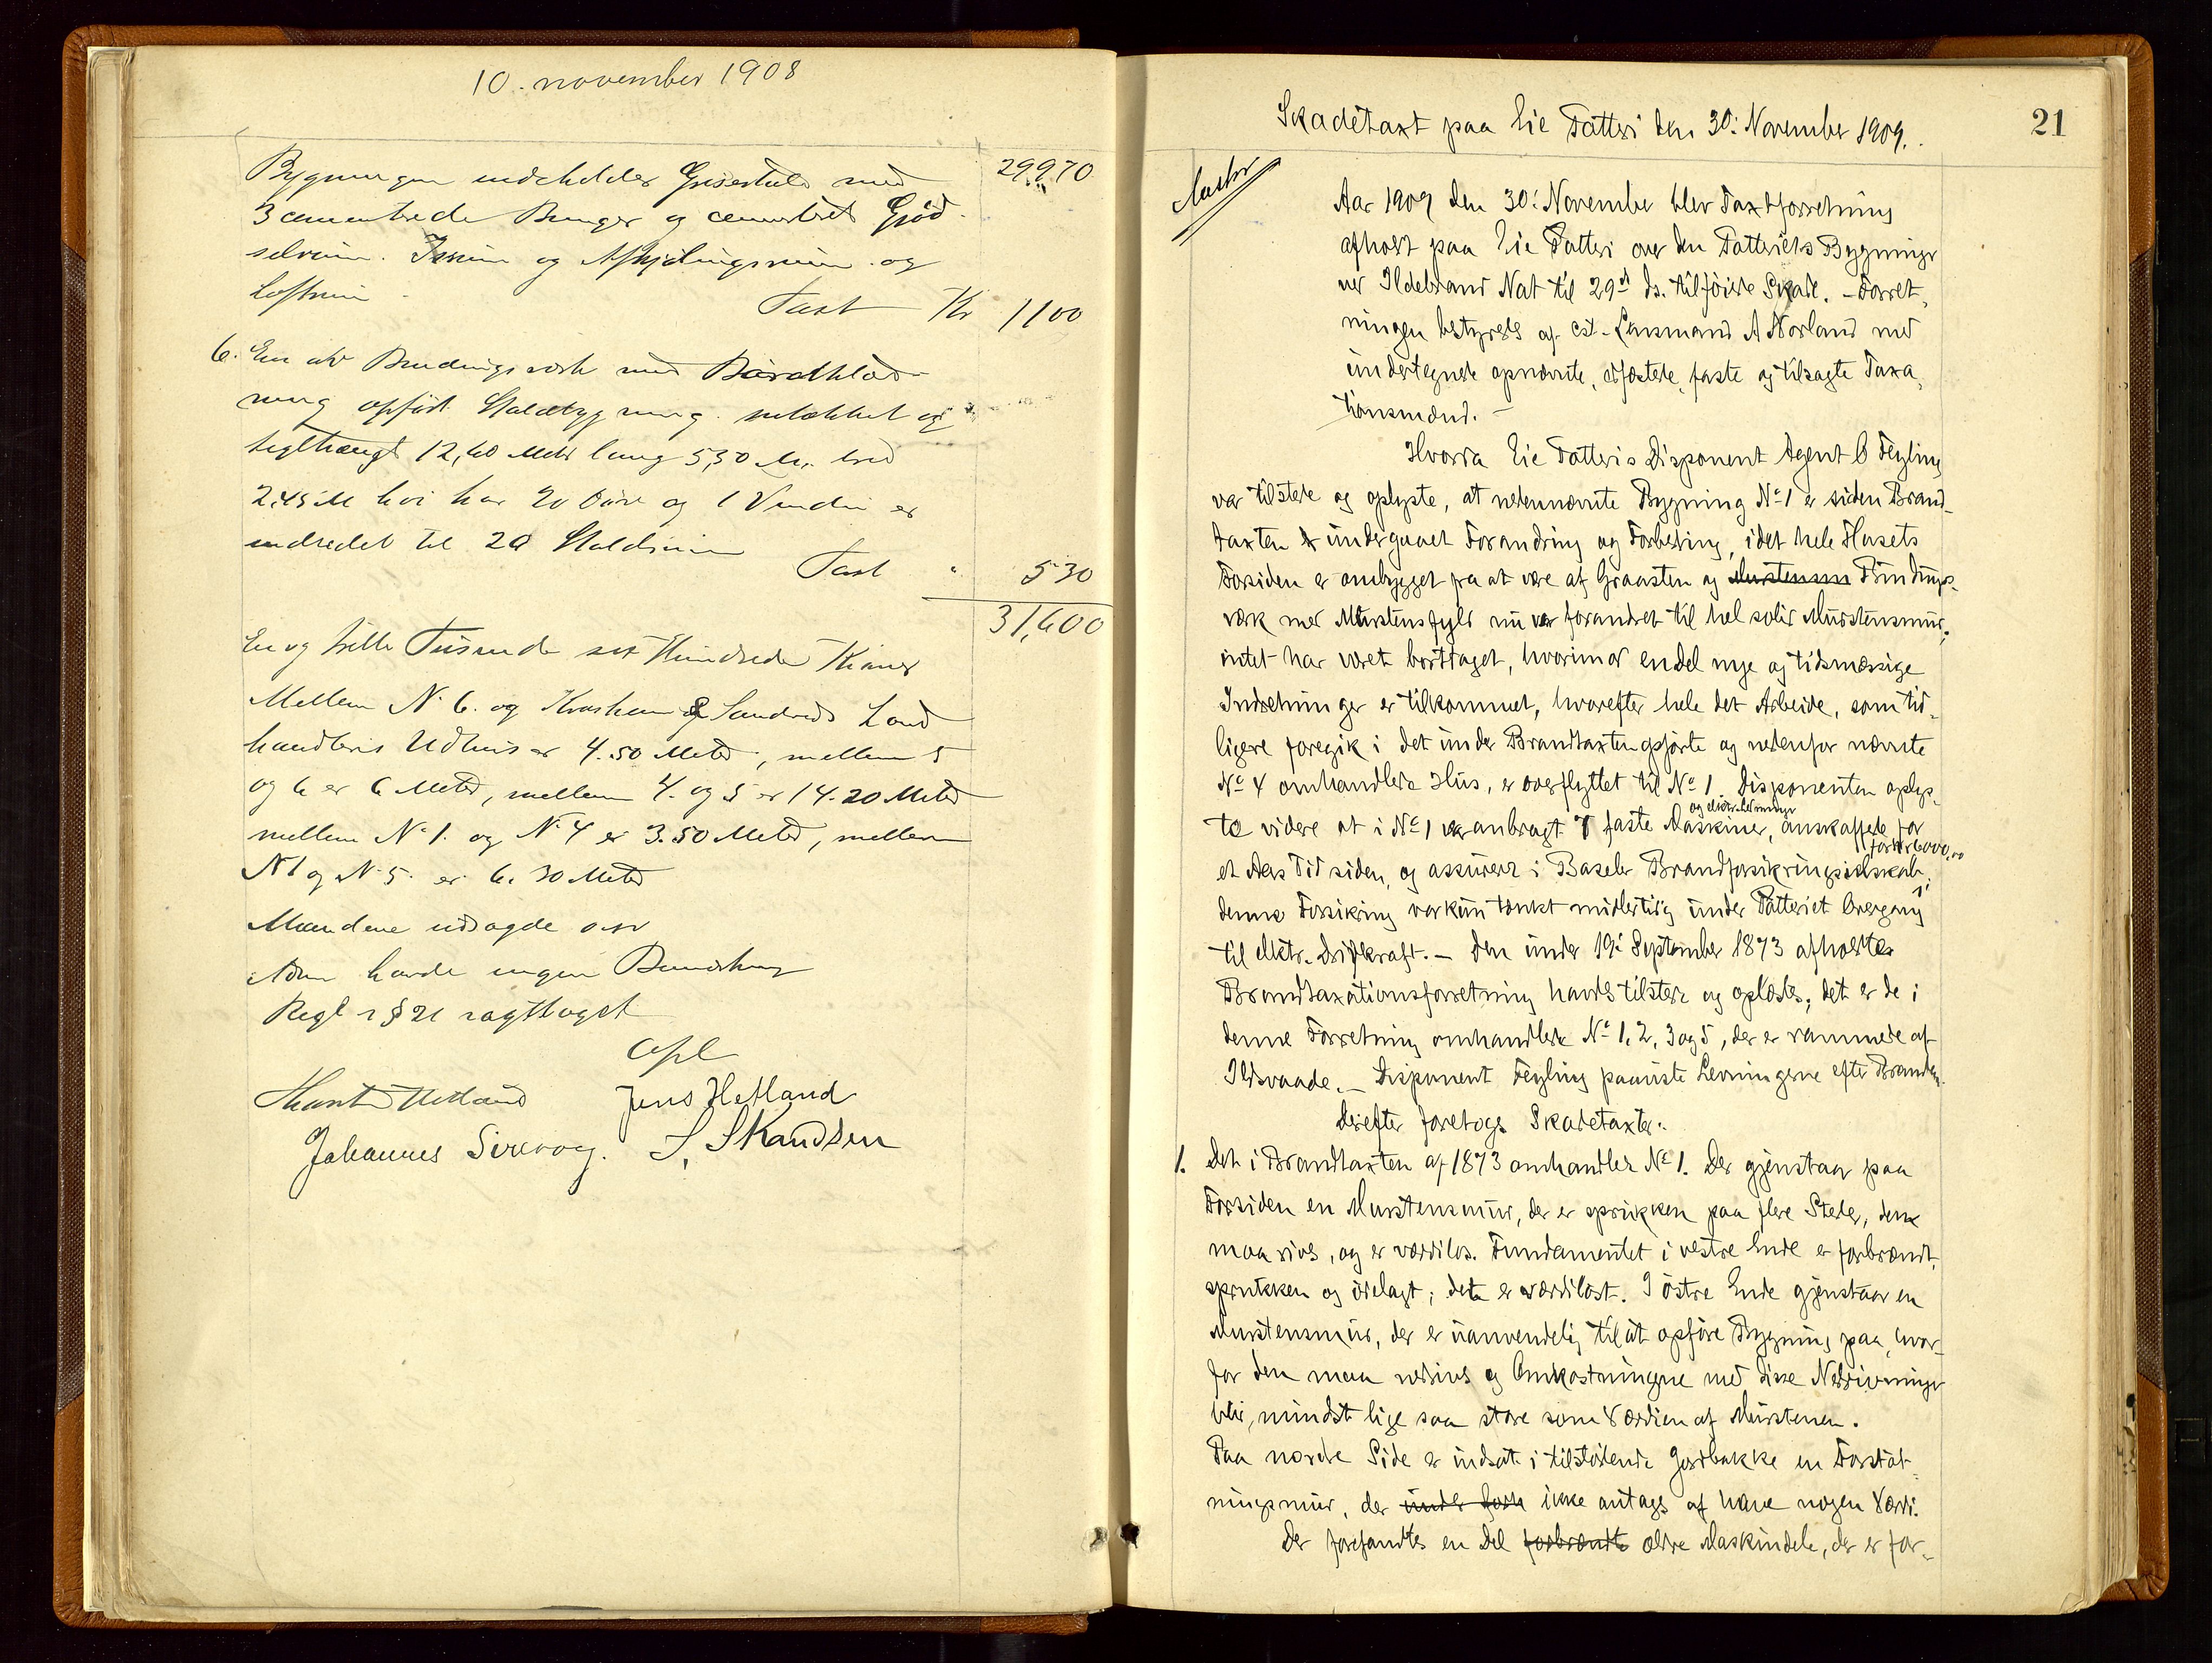 10. november 1908
Bygningen indeholder Grisestald med 29970
3 cementerede Binger og cementeret Gjød-
selrum. Isrum og Afkjølingsrum og
Loftrum
Taxt Kr 1100
6. En af Bindingsværk med Bordklæd-
ning opført Staldbygning. 
teglhængt 12,60 Meter lang 5,50 M. bred
2,45 M høi har 20 Døre og 1 Vindu er
indredet til 20 Staldrum
Taxt " 530
31,600
En og tretti Tusinde sex Hundrede Kroner
Mellem N. 6. og & Land
handleris Udhus er 4.50 Meter, mellem 5
og 6 er 6 Meter, mellem 4. og 5 er 14.20 Meter
mellem No 1. og N. 4 er 3.50 Meter, mellem
N 1 og N. 5. er 6.30 Meter
Mændene udsagde osv
havde ingen Bemerkning
Regl s § 21 iagttaget
Opl
Hetland Jens Hetland
Johannes Sirevaag. S. Skandsen
Skadetaxt paa Eie Fatteri den 30: November 1909. 21
Aar 1909 den 30: November blev Taxtforretning
afholdt paa Eie Fatteri over den Fatteriets Bygninger
ved Ildebrand Nat til 29d ds. tilføiede Skade. – Forret-
ningen bestyredes af cst. Lensmand A Norland med
undertegnede opnævnte, edfæstede faste og tilsagte Taxa-
tionsmænd. –
Hvorda Eie Fatteris Disponent Agent O Feyling
var tilstede og oplyste, at nedennævnte Bygning No 1 er siden Brand-
taxten undergaaet Forandring og Forbedring, idet hele Husets
Forsiden er ombygget fra at være af Graasten og Murstensm Bindings-
værk med Murstensfyld nu er forandret til hel solid Murstensmur;
intet har været borttaget, hvorimod endel nye og tidsmæssige
Indretninger er tilkommet, hvorefter hele det Arbeide, som tid-
ligere foregik i det under Brandtaxten opførte og nedenfor nævnte
No 4 omhandlede Hus, er overflyttet til No 1. Disponenten oplys-
og elektr. Ledninger
te videre at i No 1 var anbragt 7 faste Maskiner, anskaffede for
for Kr 6000,00
et Aars Tid siden, og assureret i Baseler Brandforsikringsselskab;
denne Forsikring var kun tænkt midlertidig under Fatteriet Overgang
til elektr. Drifkraft. – Den under 19: September 1873 afholdte
Brandtaxationsforretning havdes tilstede og oplæstes; det er de i
denne Forretning omhandlede No 1, 2, 3 og 5, der er rammede af
Ildsvaade. – Disponent Feyling paaviste Levningerne efter Branden.
Derefter foretoges Skadetaxten.
1. Det i Brandtaxten af 1873 omhandlede No 1. Der gjenstaar paa
Forsiden en Murstensmur, der er sprukken paa flere Steder, den
maa rives, og er værdiløs. Fundamentet i vestre Ende er forbrændt,
sprukken og ødelagt; dette er værdiløst. I østre Ende gjenstaar en
Murstensmur, der er uanvendelig til at opføre Bygning paa, hvor-
for den maa nedrives og Omkostningerne med disse Nedrivninger
blir, mindst lige saa store som Værdien af Murstenen.
Paa nordre Side er indsat i tilstødende Jordbakke en Forstøt-
ningsmur, der ikke antages af have nogen Værdi.
Der forefandtes en Del forbrændte ældre Maskindele, der er for-